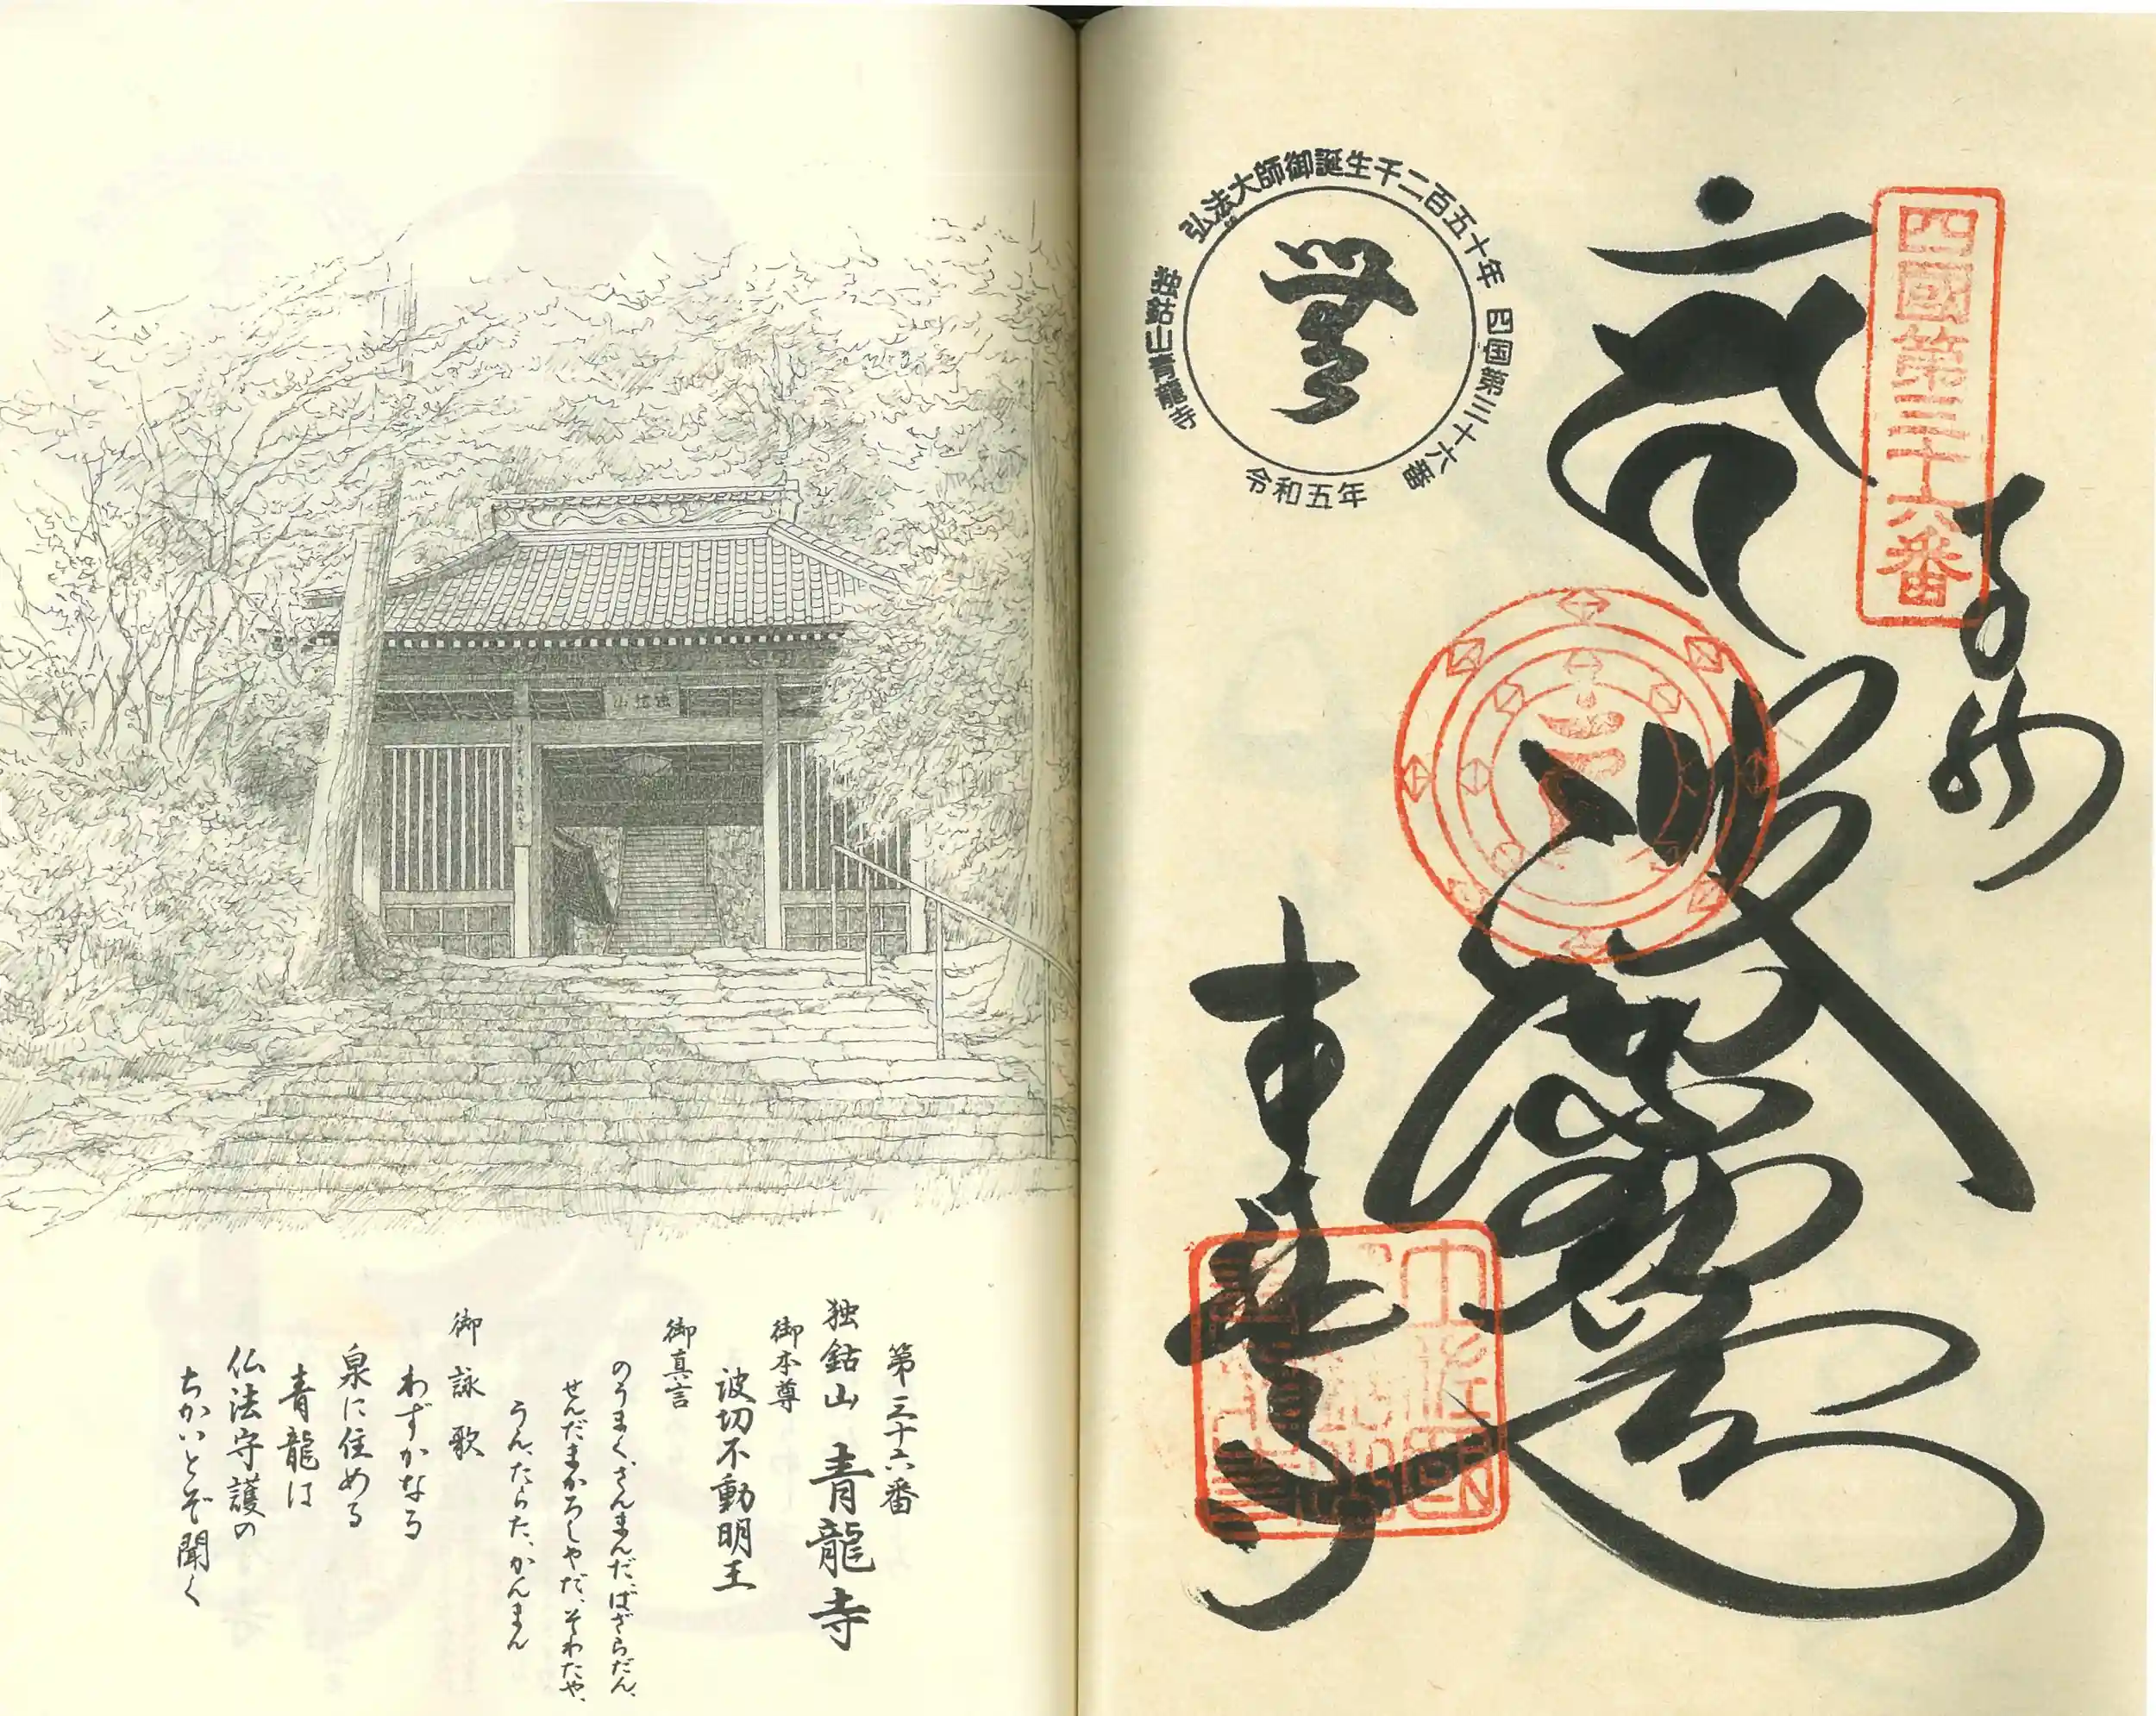 四國第三十六番
奉納
波切不動
青龍寺
弘法大師御誕生千二百五十年
四国第三十六番
令和五年
独鈷山青龍寺
第三十六番
独鈷山 青龍寺
御本尊
波切不動明王
御真言
のうまく、さんまんだ、ばざらだん、
せんだまかろしゃだ、そわたや、
うん、たらた、かんまん
御詠歌
わずかなる
泉に住める
青龍は
仏法守護の
ちかいとぞ聞く